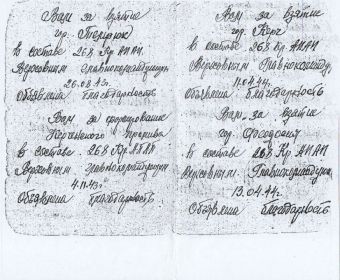 Вам за взятие
гор. Темрюк
в составе 268 Кр АПАП
Верховным Главнокомандующим
Объявлена благодарность
Вам за форсирование
Керченского пролива
в составе 268 Кр АПАП
Верховным Главнокомандующим
4.11.43г.
Объявлена благодарность
Вам за взятие
гор. Керч
в составе 268 Кр АПАП
Верховным Главнокоманд.
11.04.44г.
Объявлена благодарность
Вам за взятие
гор. Феодосия
в составе 268 Кр АПАП
Верховным Главнокомандующим
13.04.44г.
Объявлена благодарность